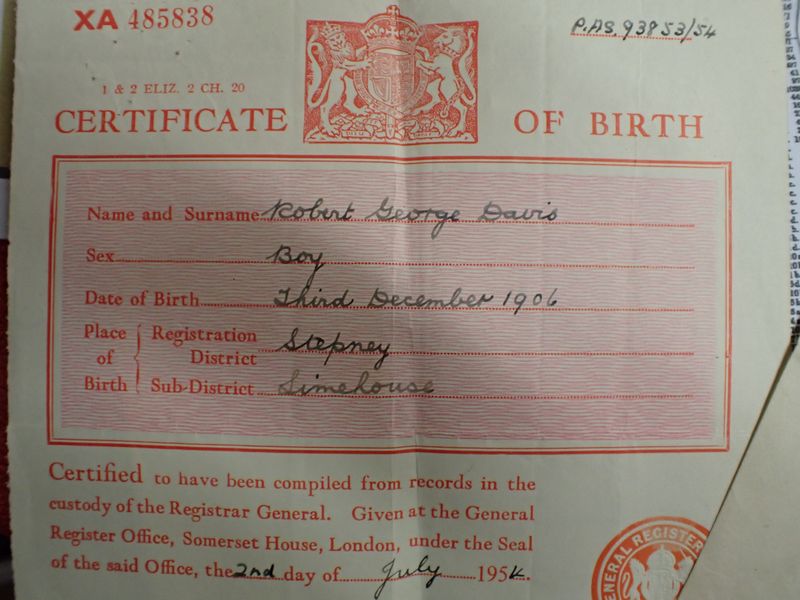 XA 485838
P.A.S. 93853/54
1 & 2 ELIZ. 2 CH. 20
CERTIFICATE OF BIRTH
Name and Surname Robert George Davis
Sex Boy
Date of Birth Third December 1906
Place of Birth { Registration District Stepney
Sub-District Limehouse
Certified to have been compiled from records in the
custody of the Registrar General. Given at the General
Register Office, Somerset House, London, under the Seal
of the said Office, the 2nd day of July 1954.
GENERAL REGISTER